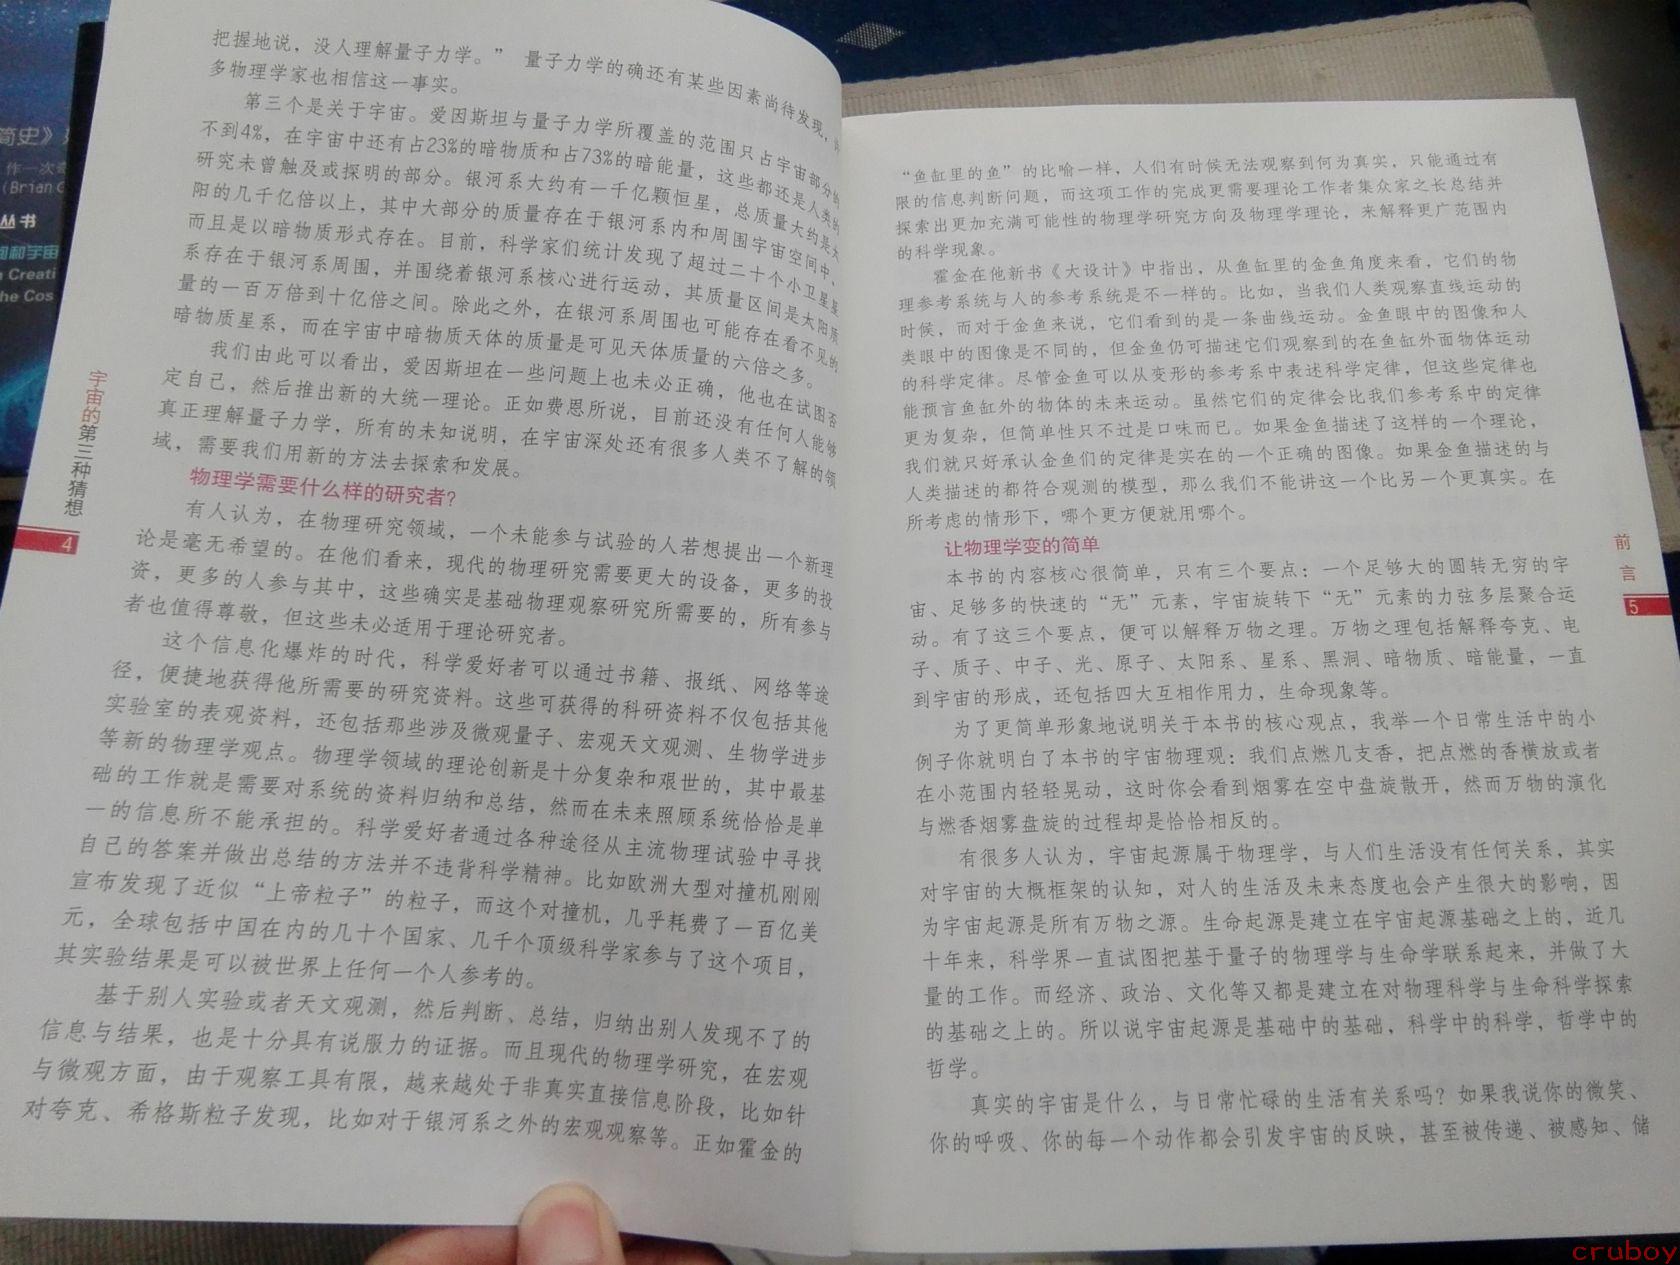 把握地说，没人理解量子力学。” 量子力学的确还有某些因素尚待发现，
多物理学家也相信这一事实。
第三个是关于宇宙。爱因斯坦与量子力学所覆盖的范围只占宇宙部分的
不到4%，在宇宙中还有占23%的暗物质和占73%的暗能量，这些都还是人类的
研究未曾触及或探明的部分。银河系大约有一千亿颗恒星，总质量大约是太
阳的几千亿倍以上，其中大部分的质量存在于银河系内和周围宇宙空间中、
而且是以暗物质形式存在。目前，科学家们统计发现了超过二十个小卫星星
系存在于银河系周围，并围绕着银河系核心进行运动，其质量区间是太阳质
量的一百万倍到十亿倍之间。除此之外，在银河系周围也可能存在看不见的
暗物质星系，而在宇宙中暗物质天体的质量是可见天体质量的六倍之多。
我们由此可以看出，爱因斯坦在一些问题上也未必正确，他也在试图否
定自己，然后推出新的大统一理论。正如费恩所说，目前还没有任何人能够
真正理解量子力学，所有的未知说明，在宇宙深处还有很多人类不了解的领
域，需要我们用新的方法去探索和发展。
物理学需要什么样的研究者？
有人认为，在物理研究领域，一个未能参与试验的人若想提出一个新理
论是毫无希望的。在他们看来，现代的物理研究需要更大的设备，更多的投
资，更多的人参与其中，这些确实是基础物理观察研究所需要的，所有参与
者也值得尊敬，但这些未必适用于理论研究者。
这个信息化爆炸的时代，科学爱好者可以通过书籍、报纸、网络等途
径，便捷地获得他所需要的研究资料。这些可获得的科研资料不仅包括其他
实验室的表观资料，还包括那些涉及微观量子、宏观天文观测、生物学进步
等新的物理学观点。物理学领域的理论创新是十分复杂和艰世的，其中最基
础的工作就是需要对系统的资料归纳和总结，然而在未来照顾系统恰恰是单
一的信息所不能承担的。科学爱好者通过各种途径从主流物理试验中寻找
自己的答案并做出总结的方法并不违背科学精神。比如欧洲大型对撞机刚刚
宣布发现了近似“上帝粒子”的粒子，而这个对撞机，几乎耗费了一百亿美
元，全球包括中国在内的几十个国家、几千个顶级科学家参与了这个项目，
其实验结果是可以被世界上任何一个人参考的。
基于别人实验或者天文观测，然后判断、总结，归纳出别人发现不了的
信息与结果，也是十分具有说服力的证据。而且现代的物理学研究，在宏观
与微观方面，由于观察工具有限，越来越处于非真实直接信息阶段，比如针
对夸克、希格斯粒子发现，比如对于银河系之外的宏观观察等。正如霍金的
宇宙的第三种猜想
4
“鱼缸里的鱼”的比喻一样，人们有时候无法观察到何为真实，只能通过有
限的信息判断问题，而这项工作的完成更需要理论工作者集众家之长总结并
探索出更加充满可能性的物理学研究方向及物理学理论，来解释更广范围内
的科学现象。
霍金在他新书《大设计》中指出，从鱼缸里的金鱼角度来看，它们的物
理参考系统与人的参考系统是不一样的。比如，当我们人类观察直线运动的
时候，而对于金鱼来说，它们看到的是一条曲线运动。金鱼眼中的图像和人
类眼中的图像是不同的，但金鱼仍可描述它们观察到的在鱼缸外面物体运动
的科学定律。尽管金鱼可以从变形的参考系中表述科学定律，但这些定律也
能预言鱼缸外的物体的未来运动。虽然它们的定律会比我们参考系中的定律
更为复杂，但简单性只不过是口味而已。如果金鱼描述了这样的一个理论，
我们就只好承认金鱼们的定律是实在的一个正确的图像。如果金鱼描述的与
人类描述的都符合观测的模型，那么我们不能讲这一个比另一个更真实。在
所考虑的情形下，哪个更方便就用哪个。
让物理学变的简单
本书的内容核心很简单，只有三个要点：一个足够大的圆转无穷的宇
宙、足够多的快速的“无”元素，宇宙旋转下“无”元素的力弦多层聚合运
动。有了这三个要点，便可以解释万物之理。万物之理包括解释夸克、电
子、质子、中子、光、原子、太阳系、星系、黑洞、暗物质、暗能量，一直
到宇宙的形成，还包括四大互相作用力，生命现象等。
为了更简单形象地说明关于本书的核心观点，我举一个日常生活中的小
例子你就明白了本书的宇宙物理观：我们点燃几支香，把点燃的香横放或者
在小范围内轻轻晃动，这时你会看到烟雾在空中盘旋散开，然而万物的演化
与燃香烟雾盘旋的过程却是恰恰相反的。
有很多人认为，宇宙起源属于物理学，与人们生活没有任何关系，其实
对宇宙的大概框架的认知，对人的生活及未来态度也会产生很大的影响，因
为宇宙起源是所有万物之源。生命起源是建立在宇宙起源基础之上的，近几
十年来，科学界一直试图把基于量子的物理学与生命学联系起来，并做了大
量的工作。而经济、政治、文化等又都是建立在对物理科学与生命科学探索
的基础之上的。所以说宇宙起源是基础中的基础，科学中的科学，哲学中的
哲学。
真实的宇宙是什么，与日常忙碌的生活有关系吗？如果我说你的微笑、
你的呼吸、你的每一个动作都会引发宇宙的反映，甚至被传递、被感知、储
前言
5
简史》
作一次奇
(Brian G
丛书
和宇宙
Creati
he Cos
cruboy